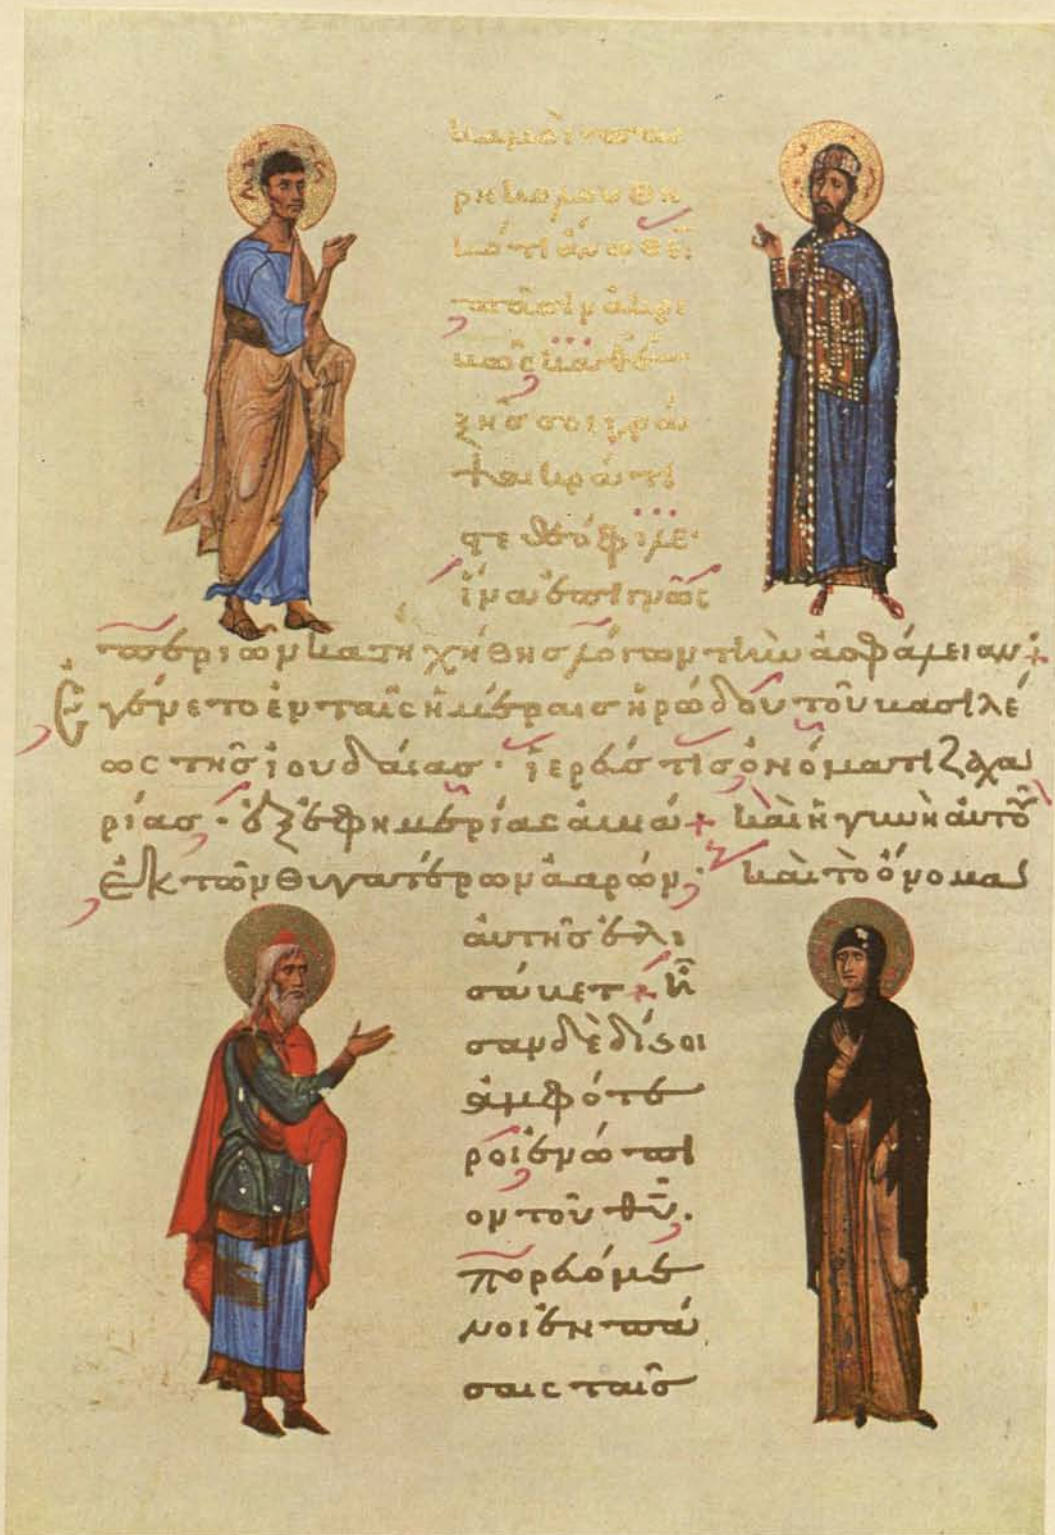 κἀμοὶ πα
ρηκολουθη
κότι ἄνωθεν
πᾶσιν ἀκρι
βῶς καθε
ξῆς σοι γρά
ψαι κράτι
στε θεόφιλε·
ἵνα ἐπιγνῷς
περὶ ὧν κατηχήθης λόγων τὴν ἀσφάλειαν+
Ἐγένετο ἐν ταῖς ἡμέραις ἡρώδου τοῦ βασιλέ
ως τῆς ἰουδαίας· ἱερεύς τις ὀνόματι ζαχα
ρίας· ἐξ ἐφημερίας ἀβιά+ καὶ ἡ γυνὴ αὐτοῦ
ἐκ τῶν θυγατέρων ἀαρών· καὶ τὸ ὄνομα
αὐτῆς ἐλι
σάβετ+ ἦ
σαν δὲ δί
ἀμφότε
ροι ἐνώπι
ον τοῦ θῡ.
πορευόμε
νοι ἐν πά
σαις ταῖς